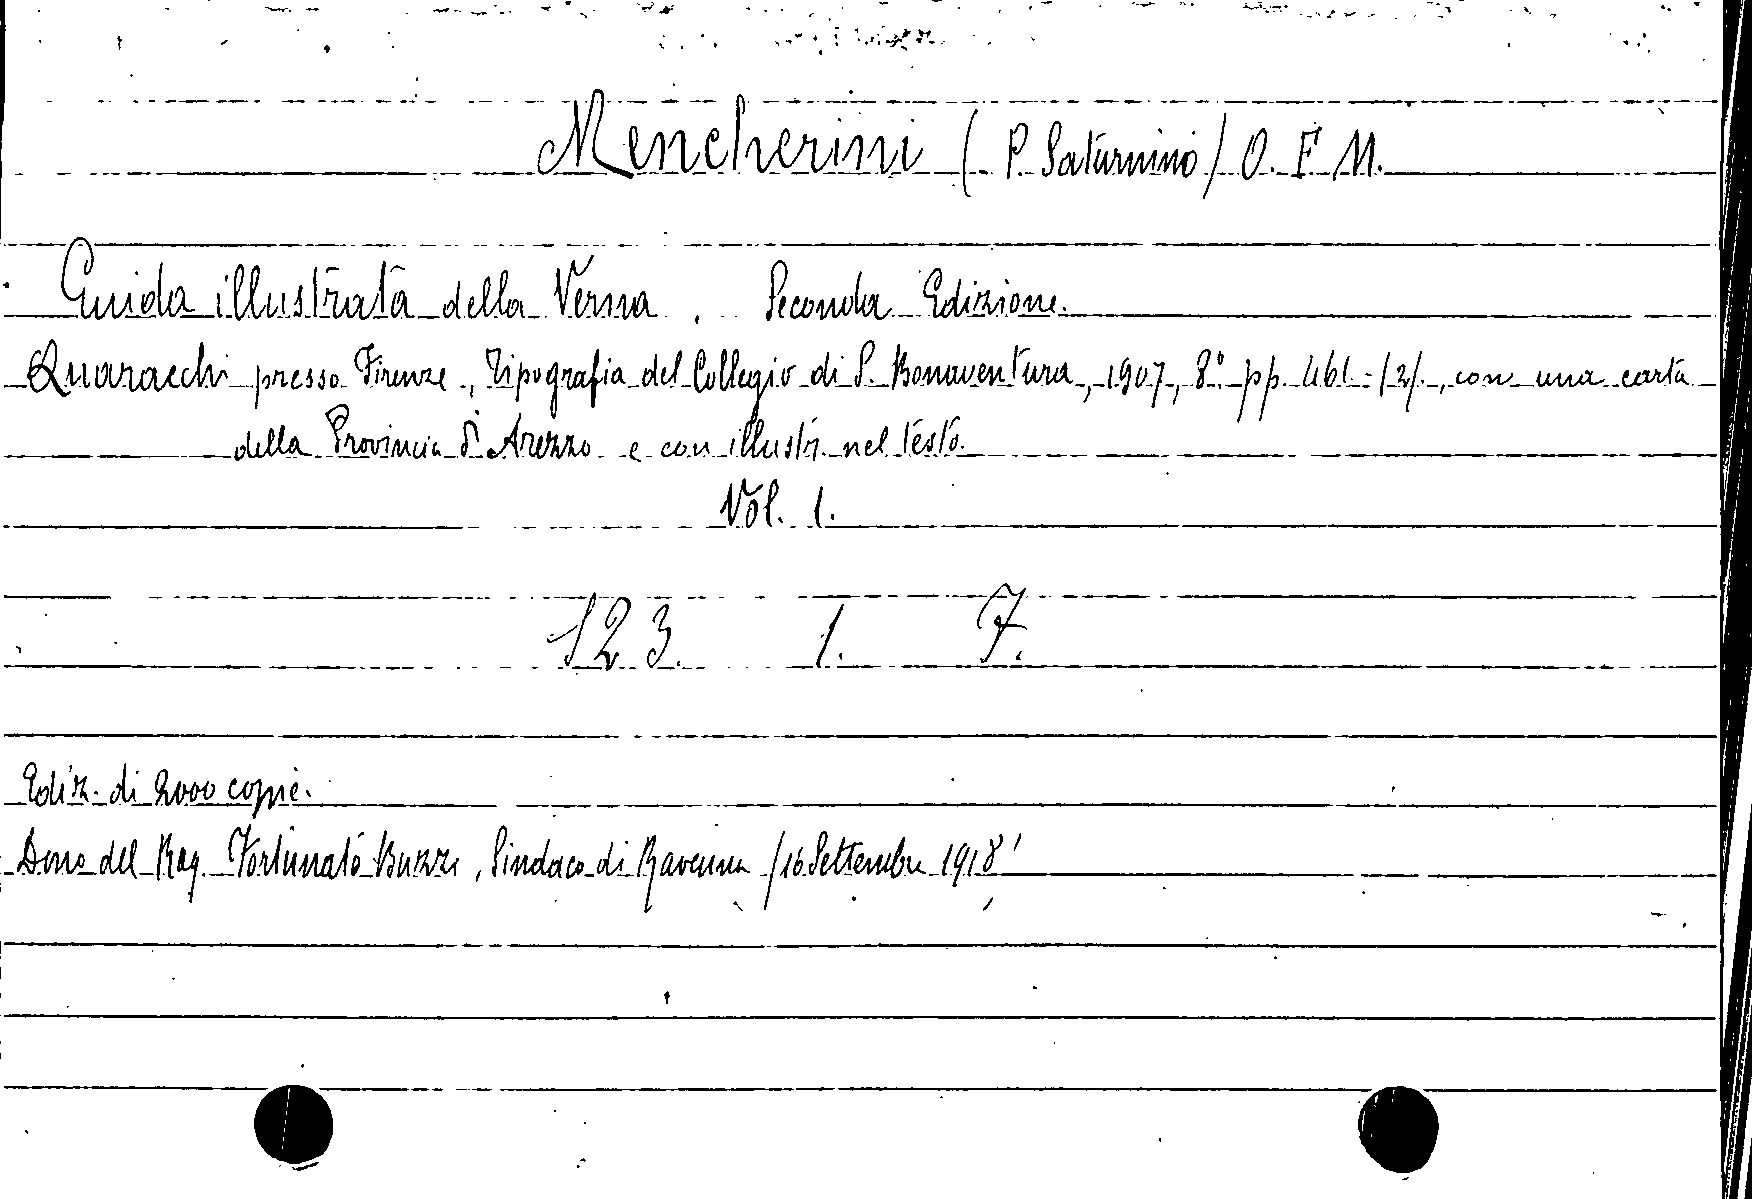 Mencherini (P. Saturnino) O. F. M.
Guida illustrata della Verna. Seconda Edizione.
Quaracchi presso Firenze, Tipografia del Collegio di S. Bonaventura, 1907, 8° pp. 461-(2)., con una carta
della Provincia d'Arezzo e con illustr. nel testo.
Vol. 1.
123. 1. 7.
Ediz. di 2000 copie.
Dono del Rag. Fortunato Buzzi, Sindaco di Ravenna (16 Settembre 1918)